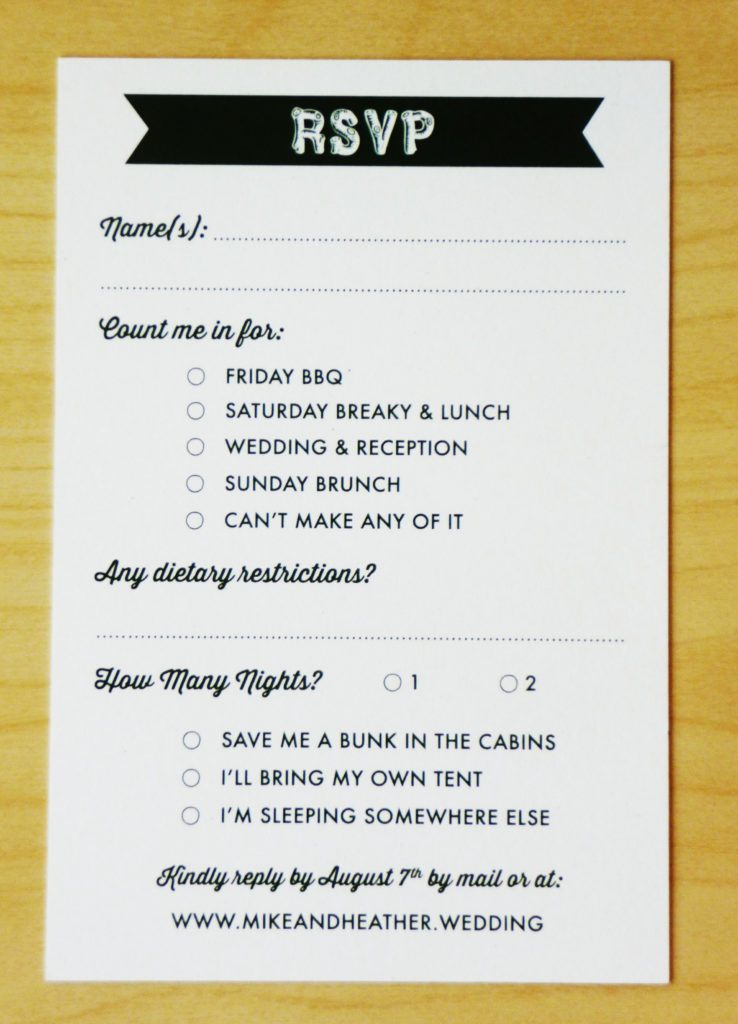 RSVP
Name(s):
Count me in for:
FRIDAY BBQ
SATURDAY BREAKY & LUNCH
WEDDING & RECEPTION
SUNDAY BRUNCH
CAN'T MAKE ANY OF IT
Any dietary restrictions?
How Many Nights? 1 2
SAVE ME A BUNK IN THE CABINS
I'LL BRING MY OWN TENT
I'M SLEEPING SOMEWHERE ELSE
Kindly reply by August 7th by mail or at:
WWW.MIKEANDHEATHER.WEDDING